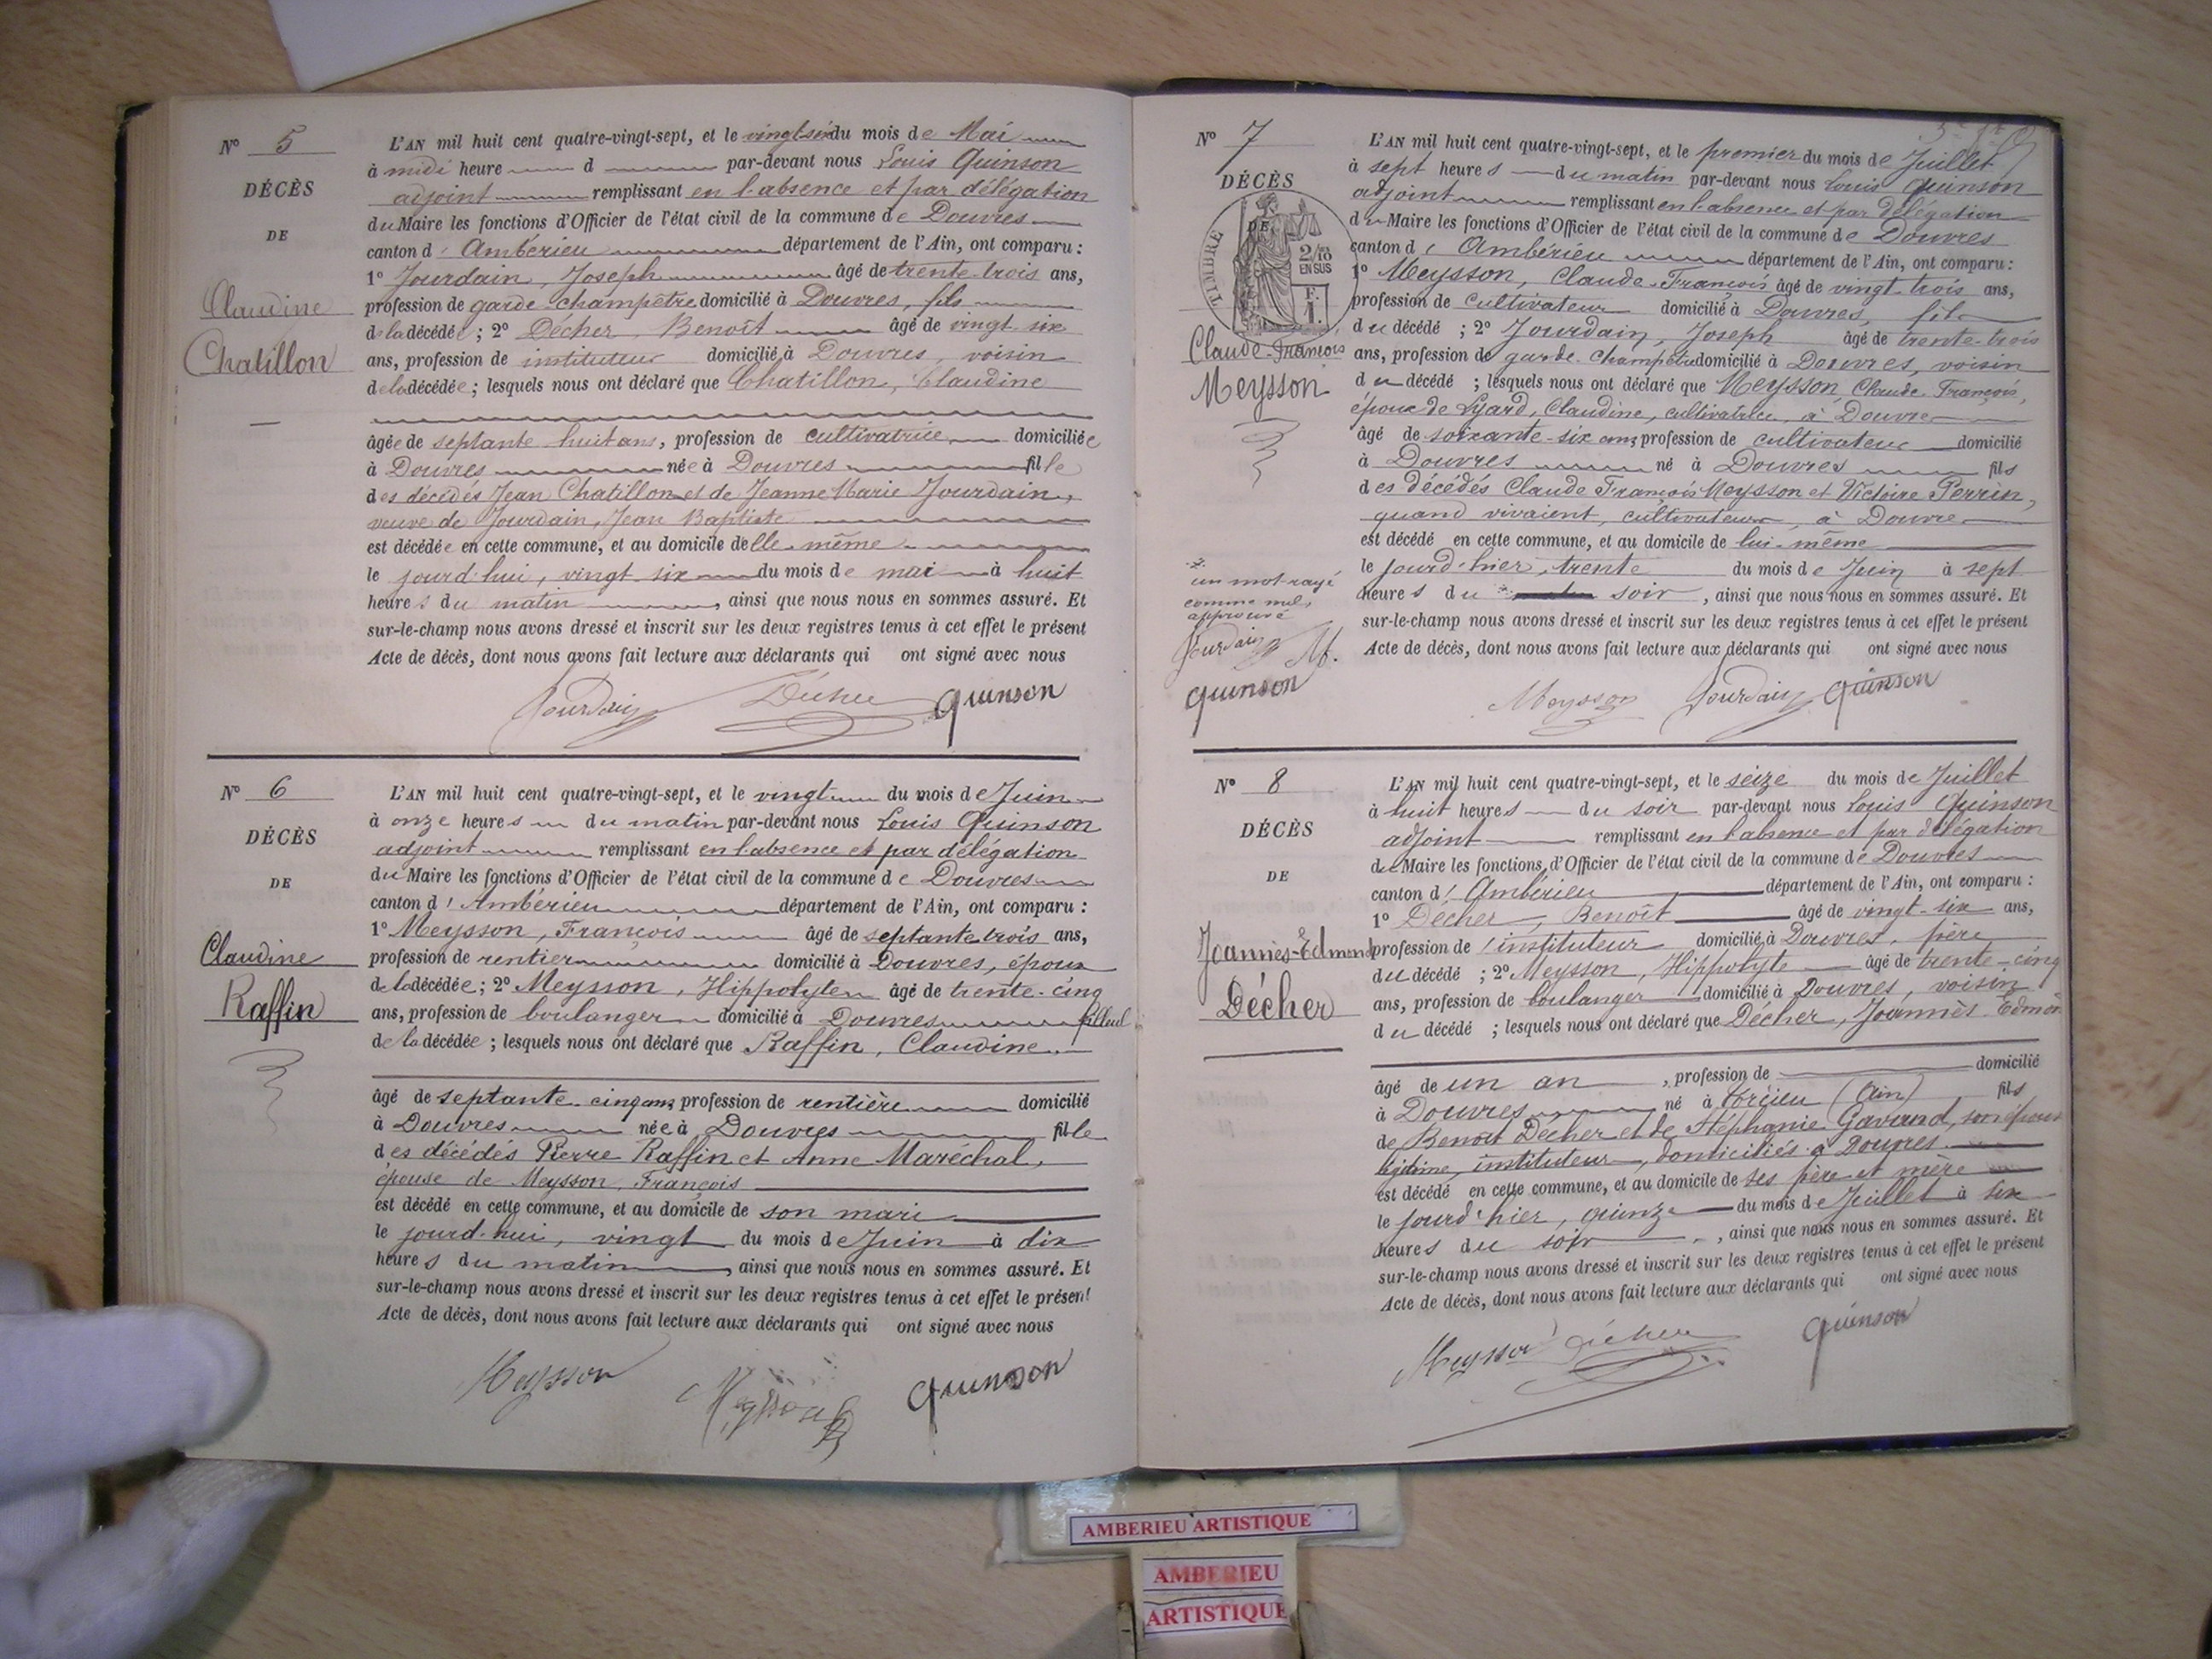 N° 5
DÉCÈS
DE
Claudine
Chatillon
L'AN mil huit cent quatre-vingt-sept, et le vingt-six du mois de Mai
à midi heure d par-devant nous Louis Quinson
adjoint remplissant en l'absence et par délégation
du Maire les fonctions d'Officier de l'état civil de la commune de Douvres
canton d'Ambérieu département de l'Ain, ont comparu :
1° Jourdain, Joseph âgé de trente-trois ans,
profession de garde-champêtre domicilié à Douvres, fils
de la décédée ; 2° Décher, Benoît âgé de vingt-six
ans, profession de instituteur domicilié à Douvres, voisin
de la décédée ; lesquels nous ont déclaré que Chatillon, Claudine
âgée de septante huit ans, profession de cultivatrice domiciliée
à Douvres née à Douvres fille
des décédés Jean Chatillon et de Jeanne Marie Jourdain,
veuve de Jourdain, Jean Baptiste
est décédée en cette commune, et au domicile d'elle-même
le jourd'hui, vingt six du mois de mai à huit
heures du matin, ainsi que nous nous en sommes assuré. Et
sur-le-champ nous avons dressé et inscrit sur les deux registres tenus à cet effet le présent
Acte de décès, dont nous avons fait lecture aux déclarants qui ont signé avec nous
Jourdain Décher Quinson
N° 6
DÉCÈS
DE
Claudine
Raffin
L'AN mil huit cent quatre-vingt-sept, et le vingt du mois de Juin
à onze heures du matin par-devant nous Louis Quinson
adjoint remplissant en l'absence et par délégation
du Maire les fonctions d'Officier de l'état civil de la commune de Douvres
canton d'Ambérieu département de l'Ain, ont comparu :
1° Meysson, François âgé de septante trois ans,
profession de rentier domicilié à Douvres, époux
de la décédée ; 2° Meysson, Hippolyte âgé de trente-cinq
ans, profession de boulanger domicilié à Douvres filleul
de la décédée ; lesquels nous ont déclaré que Raffin, Claudine
âgé de septante-cinq ans, profession de rentière domicilié
à Douvres née à Douvres fille
des décédés Pierre Raffin et Anne Maréchal,
épouse de Meysson, François
est décédé en cette commune, et au domicile de son mari
le jourd'hui, vingt du mois de Juin à dix
heures du matin, ainsi que nous nous en sommes assuré. Et
sur-le-champ nous avons dressé et inscrit sur les deux registres tenus à cet effet le présent
Acte de décès, dont nous avons fait lecture aux déclarants qui ont signé avec nous
Meysson Meysson Quinson
N° 7
DÉCÈS
DE
TIMBRE
2/10
EN SUS
F.
1.
Claude-François
Meysson
L'AN mil huit cent quatre-vingt-sept, et le premier du mois de Juillet
à sept heures du matin par-devant nous Louis Quinson
adjoint remplissant en l'absence et par délégation
du Maire les fonctions d'Officier de l'état civil de la commune de Douvres
canton d'Ambérieu département de l'Ain, ont comparu :
1° Meysson, Claude-François âgé de vingt-trois ans,
profession de cultivateur domicilié à Douvres, fils
du décédé ; 2° Jourdain, Joseph âgé de trente-trois
ans, profession de garde-champêtre domicilié à Douvres, voisin
du décédé ; lesquels nous ont déclaré que Meysson, Claude-François,
époux de Lyard, Claudine, cultivatrice, à Douvres
âgé de soixante-six ans, profession de cultivateur domicilié
à Douvres né à Douvres fils
des décédés Claude François Meysson et Victoire Perrin,
quand vivaient, cultivateurs, à Douvres
est décédé en cette commune, et au domicile de lui-même
le jourd'hier, trente du mois de Juin à sept
heures du soir, ainsi que nous nous en sommes assuré. Et
sur-le-champ nous avons dressé et inscrit sur les deux registres tenus à cet effet le présent
Acte de décès, dont nous avons fait lecture aux déclarants qui ont signé avec nous
un mot rayé
comme nul,
approuvé
Jourdain M.
Quinson
Meysson Jourdain Quinson
N° 8
DÉCÈS
DE
Joannès-Edmond
Décher
L'AN mil huit cent quatre-vingt-sept, et le seize du mois de Juillet
à huit heures du soir par-devant nous Louis Quinson
adjoint remplissant en l'absence et par délégation
du Maire les fonctions d'Officier de l'état civil de la commune de Douvres
canton d'Ambérieu département de l'Ain, ont comparu :
1° Décher, Benoît âgé de vingt-six ans,
profession d'instituteur domicilié à Douvres, père
du décédé ; 2° Meysson, Hippolyte âgé de trente-cinq
ans, profession de boulanger domicilié à Douvres, voisin
du décédé ; lesquels nous ont déclaré que Décher, Joannès-Edmond
âgé de un an, profession de domicilié
à Douvres né à Torcieu (Ain) fils
de Benoît Décher et de Stéphanie Gavand, son épouse
légitime, instituteur, domiciliés à Douvres
est décédé en cette commune, et au domicile de ses père et mère
le jourd'hier, quinze du mois de Juillet à six
heures du soir, ainsi que nous nous en sommes assuré. Et
sur-le-champ nous avons dressé et inscrit sur les deux registres tenus à cet effet le présent
Acte de décès, dont nous avons fait lecture aux déclarants qui ont signé avec nous
Meysson Décher Quinson
AMBERIEU ARTISTIQUE
AMBERIEU
ARTISTIQUE